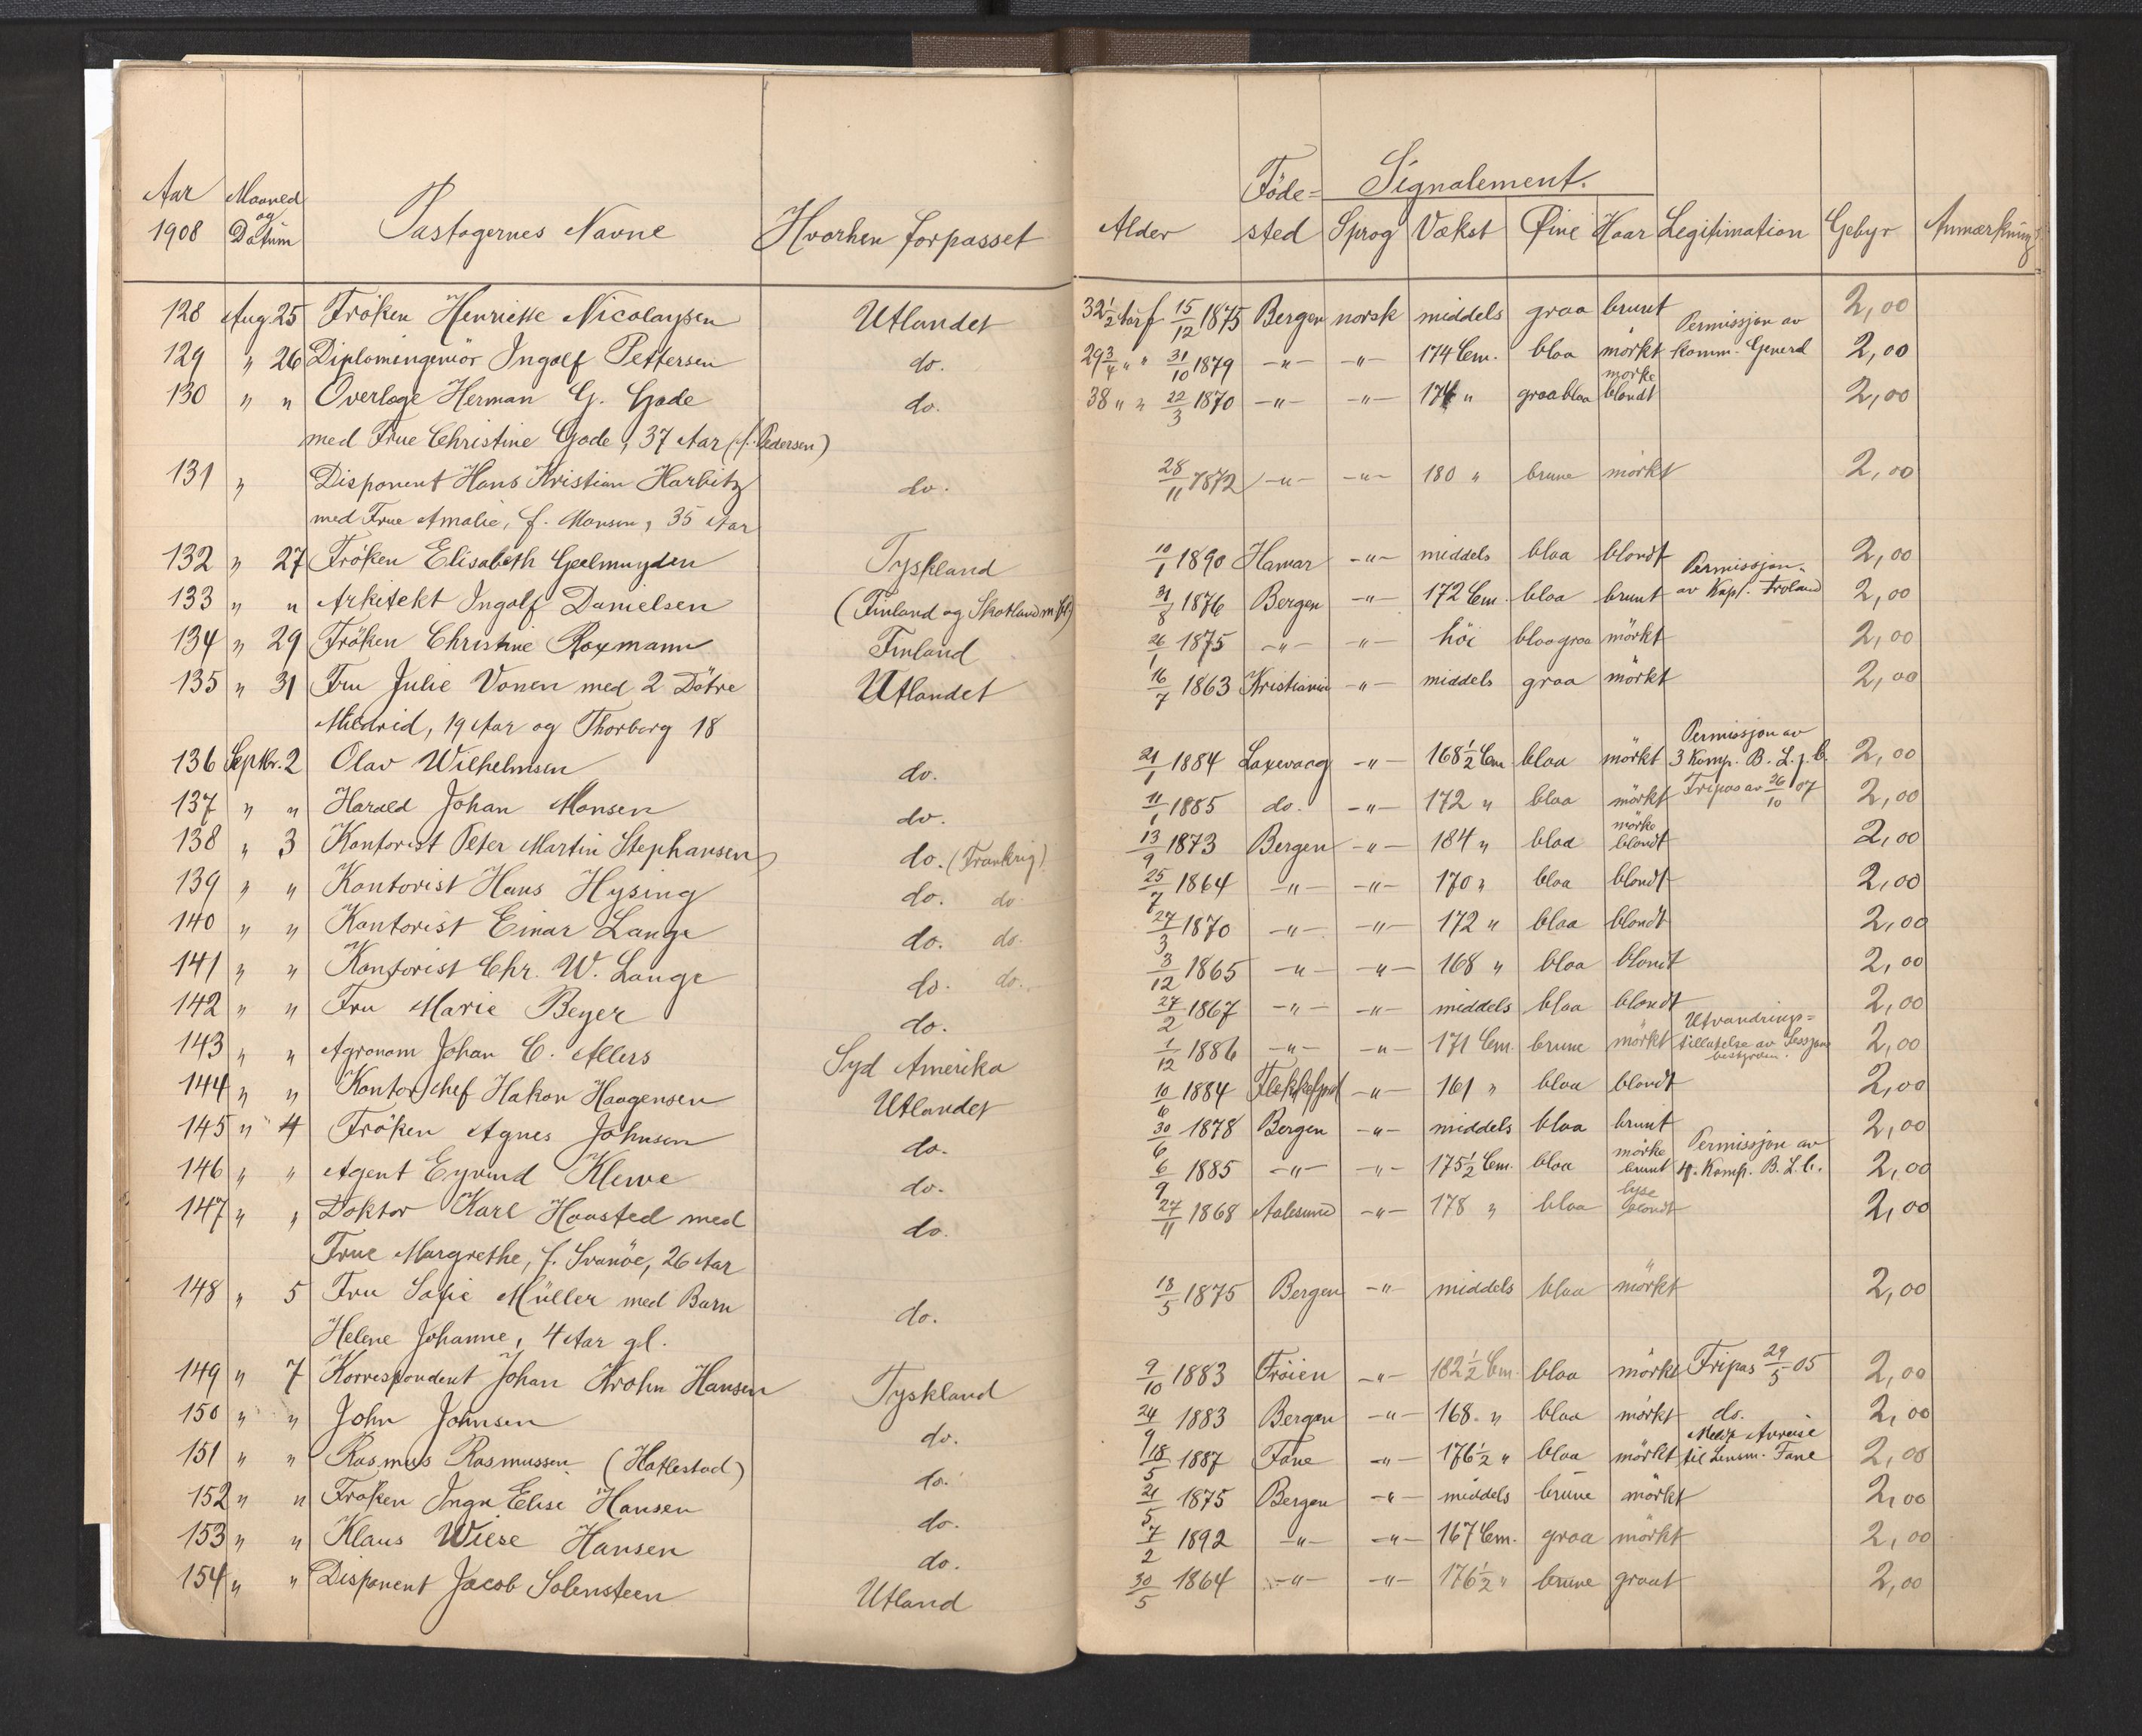 Aar 1908 Maaned og Datum Pastagernes Navne Hvorhen forpasset Alder Föde=sted Signalement. Sprog Vækst Øine Haar Legitimation Gebyr Anmærkning
128 Aug. 25 Fröken Henriette Nicolaysen Utlandet 32½ Aar f. 15/12 1875 Bergen norsk middels graa brunt 2,00
129 " 26 Diplomingeniör Ingolf Pettersen do. 29¾ " " 31/10 1879 -"- -"- 174 Cm. blaa mörkt Permissjon av komm. General 2,00
130 " " Overlæge Herman G. Gade do. 38 " " 22/3 1870 -"- -"- 174 " graablaa mörke blondt 2,00
med Frue Christine Gade, 37 Aar (f. Pedersen)
131 " Disponent Hans Kristian Harbitz do. 28/11 1872 -"- -"- 180 " brune mörkt 2,00
med Frue Amalie, f. Monsen, 35 Aar
132 " 27 Fröken Elisabeth Geelmuyden Tyskland 10/1 1890 Hamar -"- middels blaa blondt 2,00
133 " " Arkitekt Ingolf Danielsen (Finland og Skotland m. fl.) 31/8 1876 Bergen -"- 172 Cm. blaa brunt Permissjon av Kapt. Froland 2,00
134 " 29 Fröken Christine Roxmann Finland 26/1 1875 -"- -"- höi blaagraa mörkt 2,00
135 " 31 Fru Julie Vonen med 2 Dötre Utlandet 16/7 1863 Kristiania -"- middels graa mörkt 2,00
Mildrid, 19 Aar og Thorborg 18
136 Septbr. 2 Olav Wilhelmsen do. 21/1 1884 Laxevaag -"- 168½ Cm. blaa mörkt Permissjon av 3 Komp. B. L. j. C. 2,00
137 " " Harald Johan Monsen do. 11/1 1885 do. -"- 172 " blaa mörkt Fripas av 26/10 07 2,00
138 " 3 Kontorist Peter Martin Stephansen do. (Frankrig) 13/9 1873 Bergen -"- 184 " blaa mörke blondt 2,00
139 " " Kontorist Hans Hysing do. do. 25/7 1864 -"- -"- 170 " blaa blondt 2,00
140 " " Kontorist Einar Lange do. do. 27/3 1870 -"- -"- 172 " blaa blondt 2,00
141 " " Kontorist Chr. W. Lange do. do. 3/12 1865 -"- -"- 168 " blaa blondt 2,00
142 " " Fru Marie Beyer do. 27/2 1867 -"- -"- middels blaa blondt 2,00
143 " " Agronom Johan C. Allers Syd Amerika 1/12 1886 -"- -"- 171 Cm. brune mörkt Utvandrings=tillatelse av Sessjons 2,00
144 " " Kontorchef Hakon Haagensen Utlandet 10/6 1884 Flekkefjord -"- 161 " blaa blondt 2,00
145 " 4 Fröken Agnes Johnsen do. 30/6 1878 Bergen -"- middels blaa brunt 2,00
146 " " Agent Eyvind Klewe do. 6/9 1885 -"- -"- 175½ Cm. blaa mörke brunt Permissjon av 4. Komp. B. L. C. 2,00
147 " " Doktor Karl Haasted med do. 27/11 1868 Aalesund -"- 178 " blaa lyse blondt 2,00
Frue Margrethe, f. Svanöe, 26 Aar
148 " 5 Fru Sofie Müller med Barn do. 18/5 1875 Bergen -"- middels blaa mörkt 2,00
Helene Johanne, 4 Aar gl.
149 " 7 Korrespondent Johan Krohn Hansen Tyskland 9/10 1883 Fröien -"- 182½ Cm. blaa mörkt Fripas 29/5 05 2,00
150 " " John Johnsen do. 24/9 1883 Bergen -"- 168. " blaa mörkt do. 2,00
151 " " Rasmus Rasmussen (Hatlestad) do. 18/5 1887 Fane -"- 176½ " blaa mörkt til Lensm. Fane 2,00
152 " " Fröken Inga Elise Hansen do. 21/5 1875 Bergen -"- middels brune mörkt 2,00
153 " " Klaus Wiese Hansen do. 7/2 1892 -"- -"- 167 Cm. graa mörkt 2,00
154 " " Disponent Jacob Solensteen Utland 30/5 1864 -"- -"- 176½ " brune graat 2,00